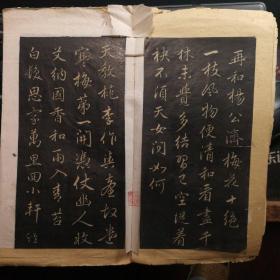 再和楊公濟梅花十絕
一枝風物便清和看盡千
林未覺多結習已空從着
袂不須天女問如何
天教桃李作輿臺故遣
寒梅第一開憑仗幽人收
艾納國香和雨入青苔
白髮思家萬里回小軒臨